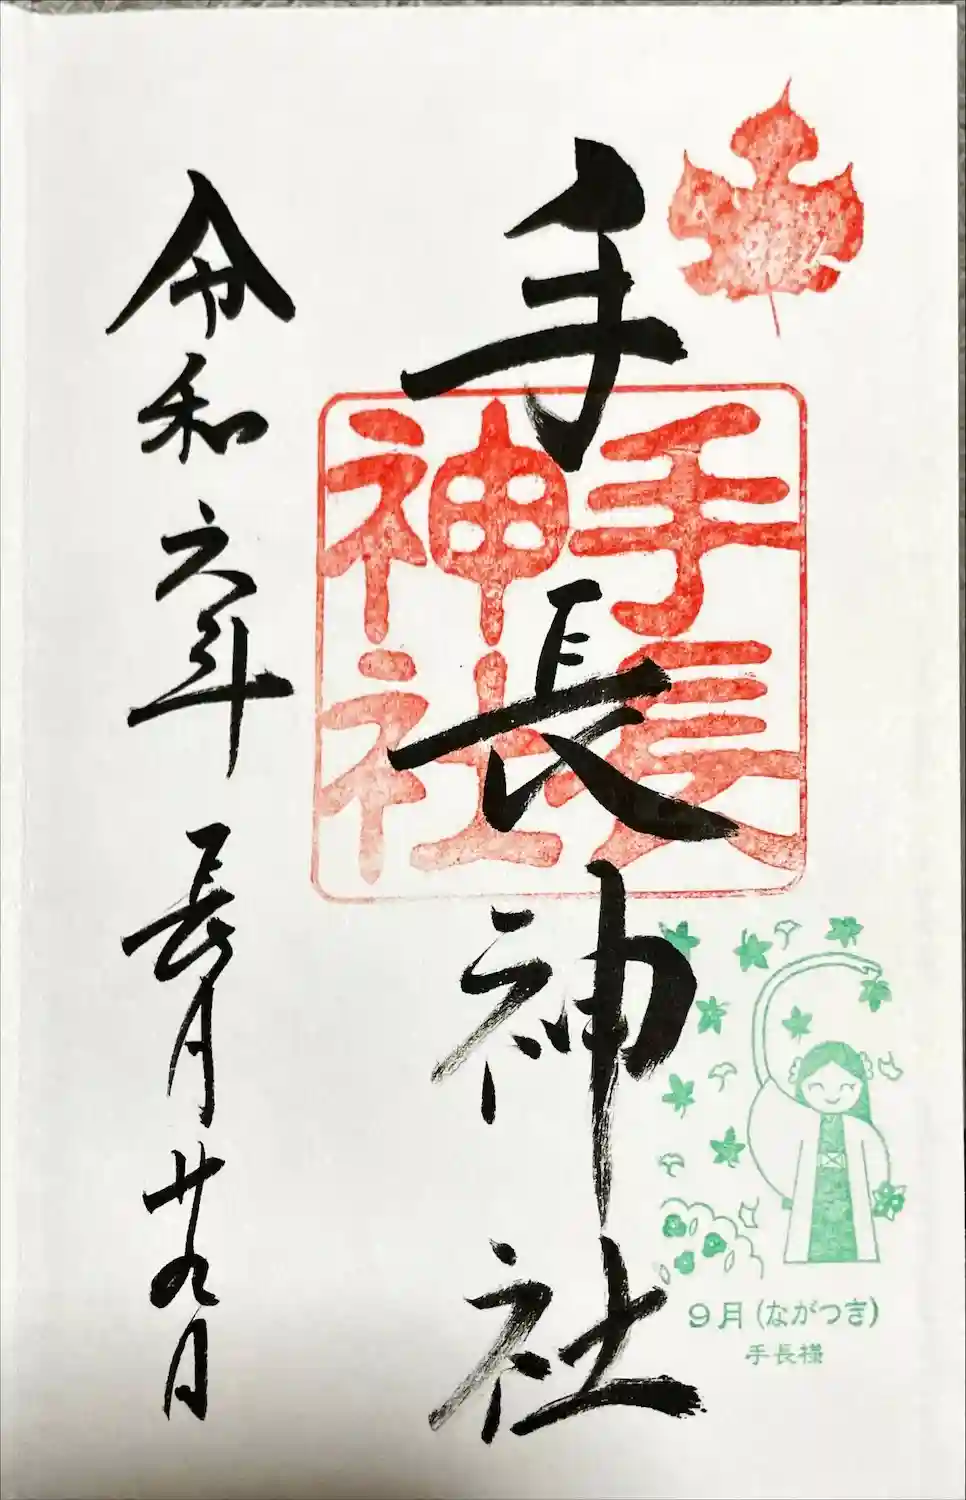 手長神社
手長
神社
9月(ながつき)
手長様
令和六年長月廿九日